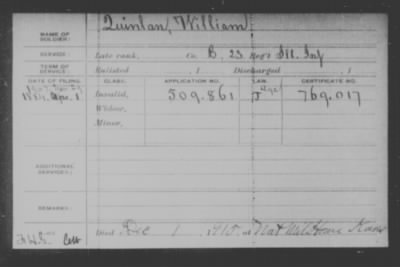 NAME OF SOLDIER: Quinlan, William
SERVICE: Late rank, Co. B, 23 Reg't Ill. Inf
TERM OF SERVICE: Enlisted , 1 Discharged , 1
DATE OF FILING. CLASS. APPLICATION NO. LAW. CERTIFICATE NO.
1884, Apr. 1 Invalid, 509.861 J 769.017
Widow,
Minor,
ADDITIONAL SERVICES:
REMARKS:
Died Dec 1, 1915, at Nat Mil Home Kans